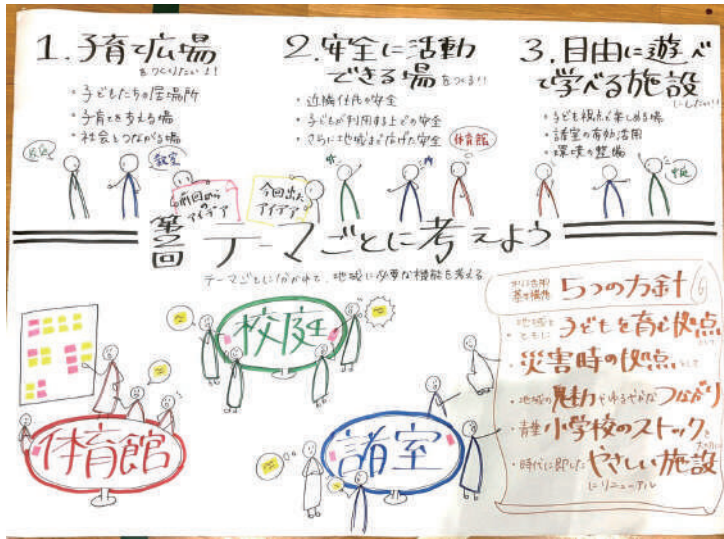 1. 子育て広場
をつくりたい!!
・子どもたちの居場所
・子育てを支える場
・社会とつながる場
2. 安全に活動
できる場をつくる!!
・近隣住民の安全
・子どもが利用する上での安全
・さらに地域まで広げた安全
体育館
3. 自由に遊べ
て学べる施設
にしたい!!
・子ども視点で楽しめる場
・諸室の有効活用
・環境の整備
前回からのアイデア
今回出たアイデア
第2回 テーマごとに考えよう
テーマごとに分かれて、地域に必要な機能を考える
校庭
体育館
諸室
基本構想
5つの方針
・地域とともに 子どもを育む拠点として
・災害時の拠点として
・地域の魅力やゆるやかなつながり
・小学校のストックを
・時代に即した やさしい施設
にリニューアル